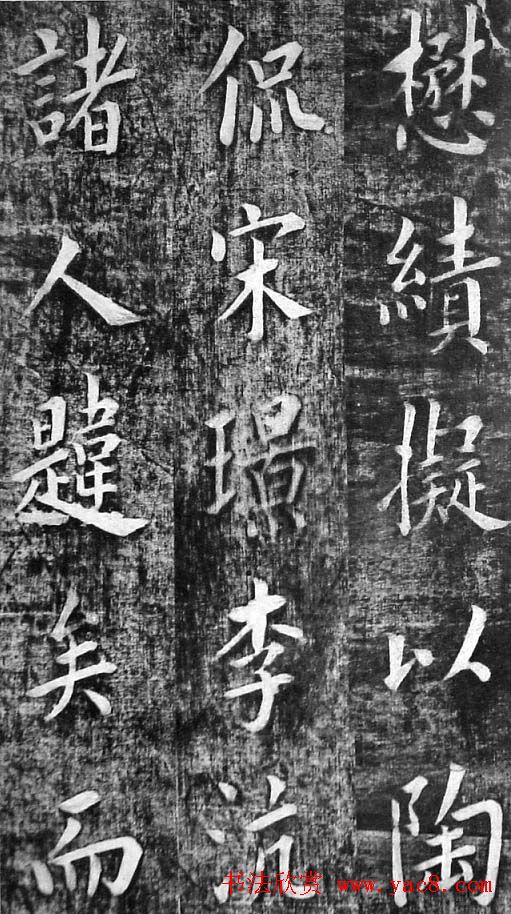 懋績擬以陶
侃宋璟李沆
諸人韙矣而
书法欣赏 www.yac8.com